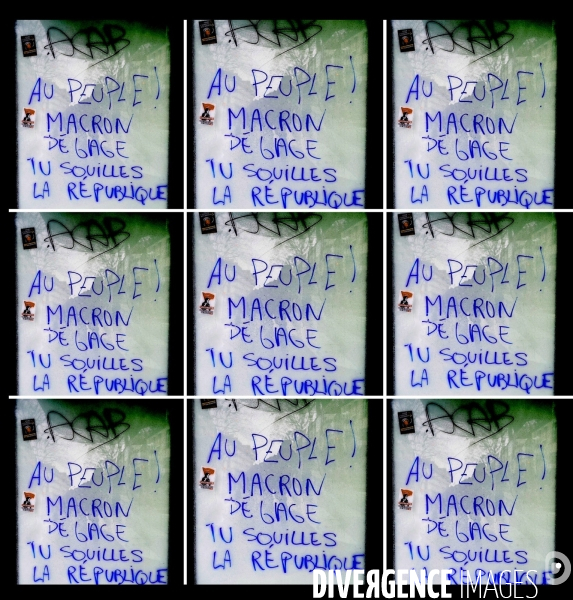 ACAB ACAB ACAB
AU PEUPLE! AU PEUPLE! AU PEUPLE!
MACRON MACRON MACRON
DÉGAGE DÉGAGE DÉGAGE
TU SOUILLES TU SOUILLES TU SOUILLES
LA RÉPUBLIQUE LA RÉPUBLIQUE LA RÉPUBLIQUE
ACAB ACAB ACAB
AU PEUPLE! AU PEUPLE! AU PEUPLE!
MACRON MACRON MACRON
DÉGAGE DÉGAGE DÉGAGE
TU SOUILLES TU SOUILLES TU SOUILLES
LA RÉPUBLIQUE LA RÉPUBLIQUE LA RÉPUBLIQUE
ACAB ACAB ACAB
AU PEUPLE! AU PEUPLE! AU PEUPLE!
MACRON MACRON MACRON
DÉGAGE DÉGAGE DÉGAGE
TU SOUILLES TU SOUILLES TU SOUILLES
LA RÉPUBLIQUE LA RÉPUBLIQUE LA RÉPUBLIQUE
DIVERGENCE IMAGES